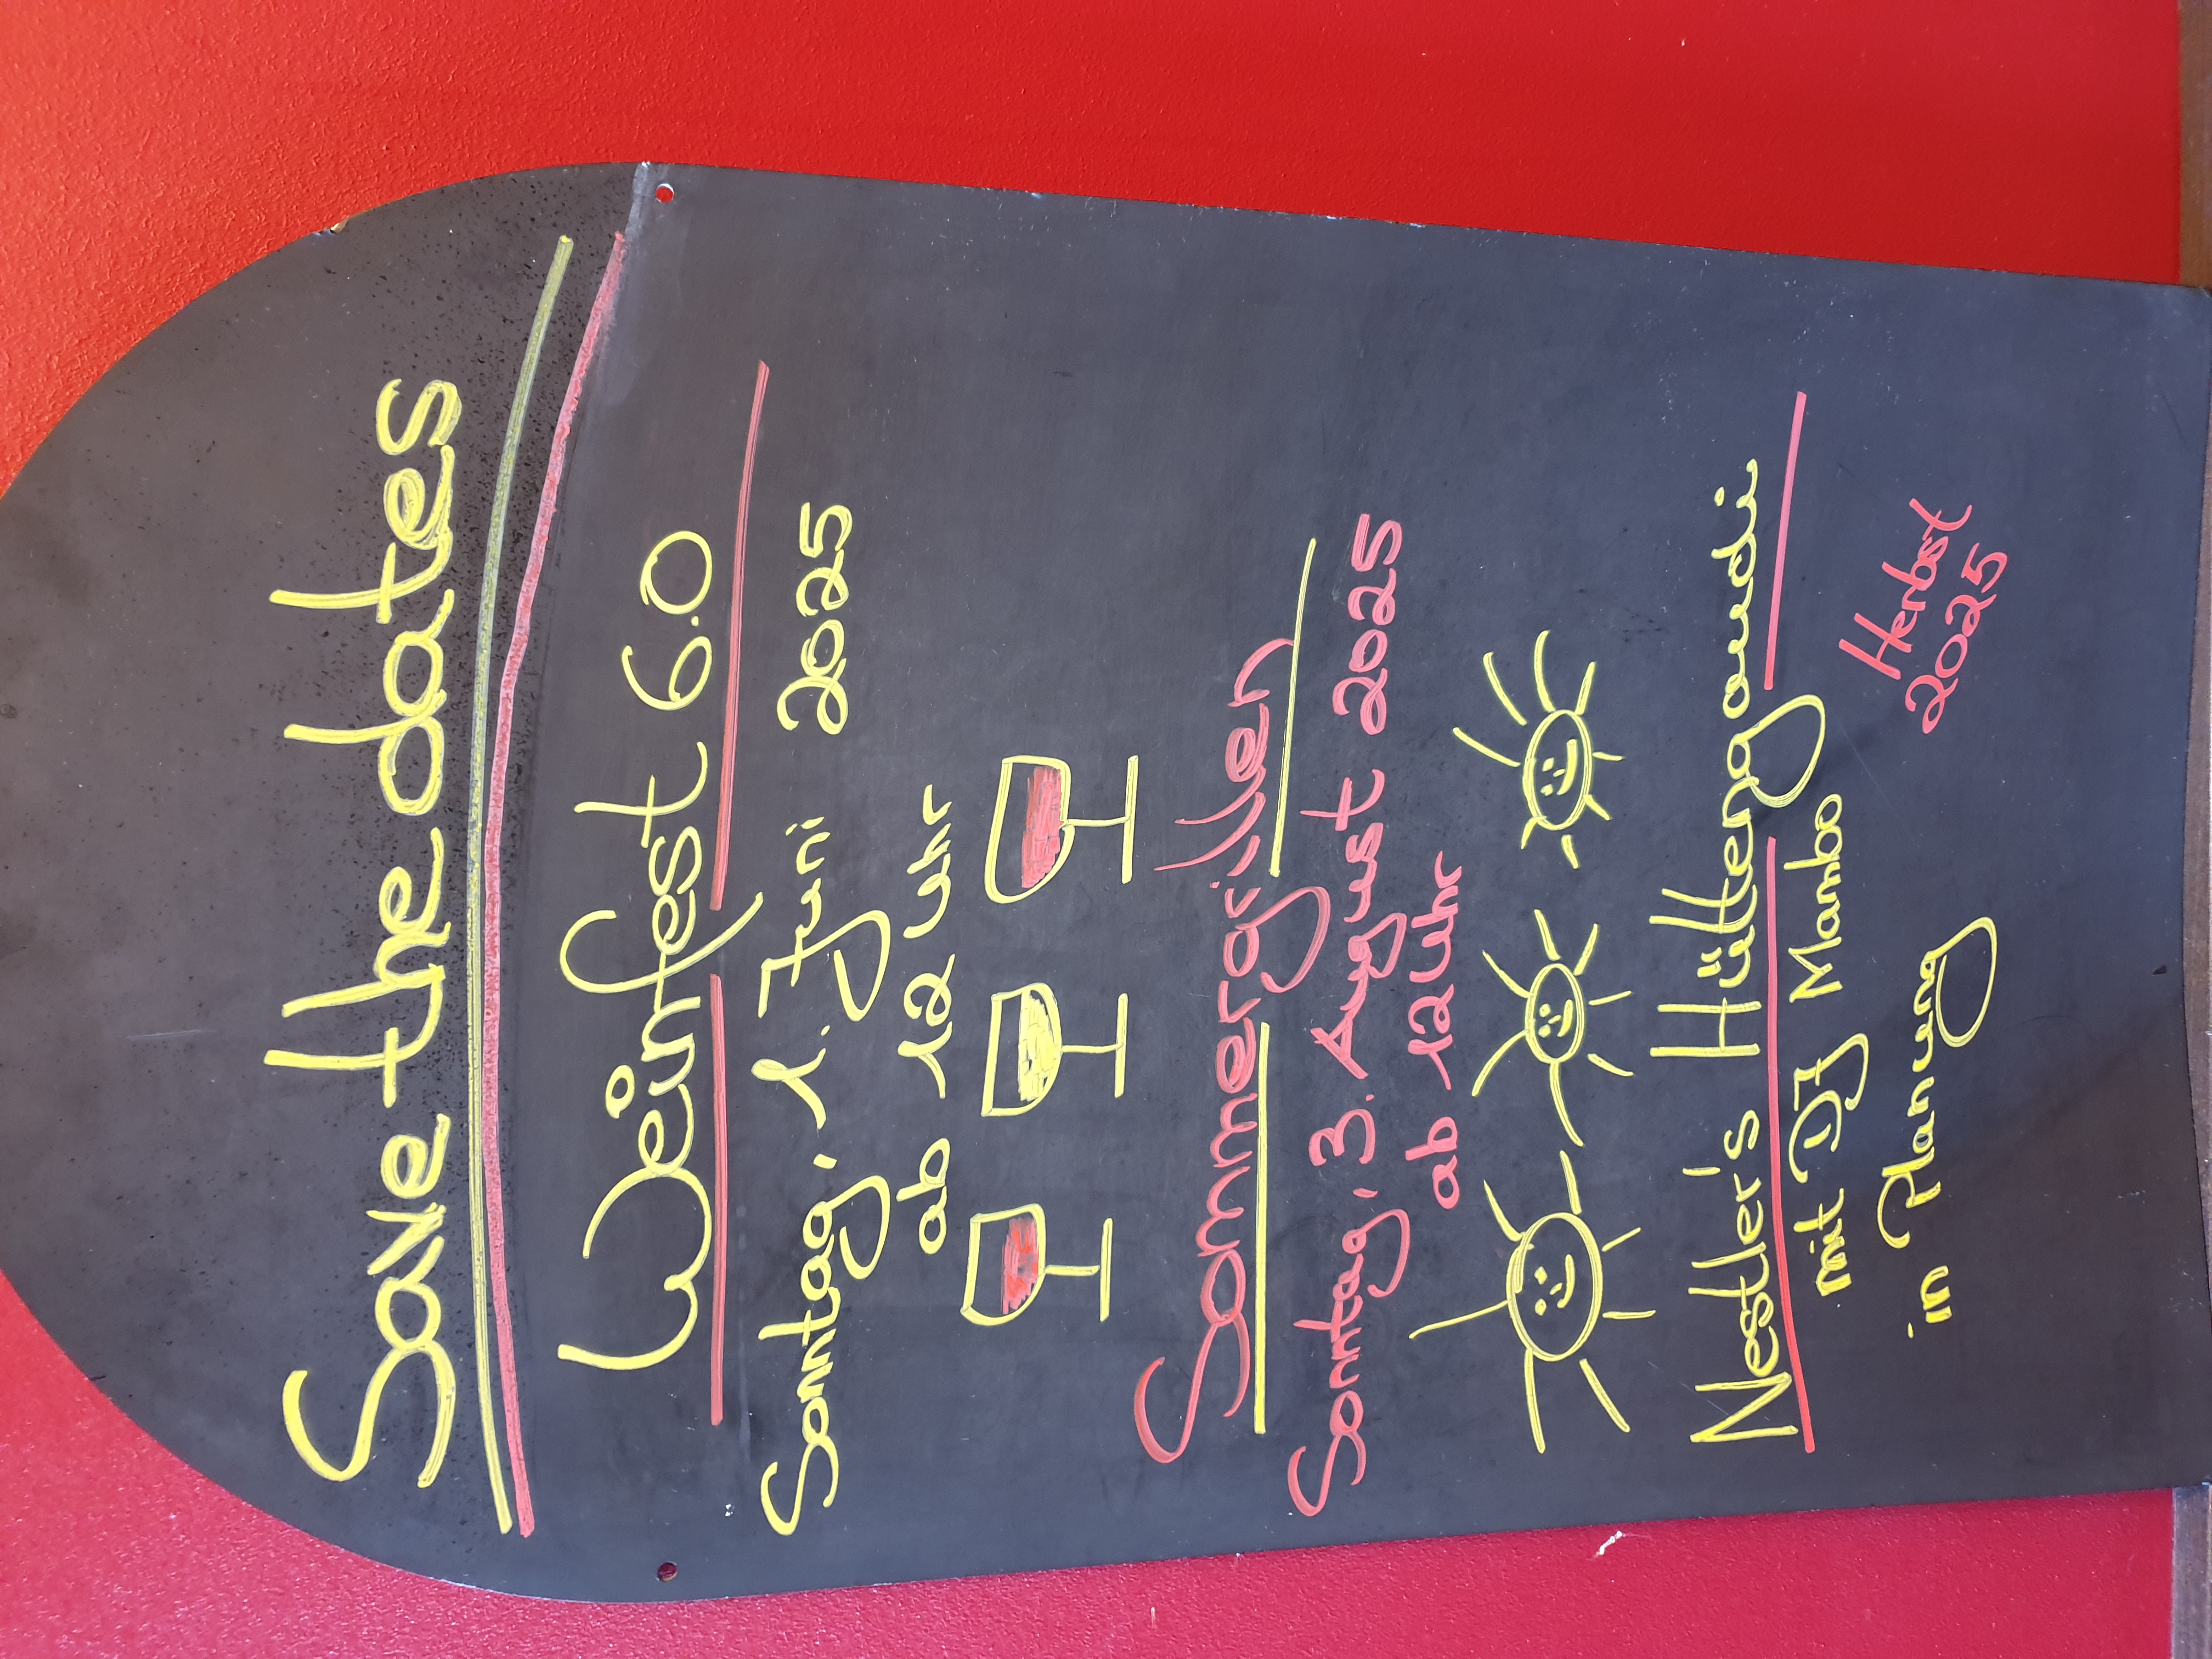 Save the dates
Weinfest 6.0
Sonntag, 1. Juni 2025
ab 12 Uhr
Sommergrillen
Sonntag, 3. August 2025
ab 12 Uhr
Nestler's Hüttengaudi
mit DJ Mambo
in Planung
Herbst
2025